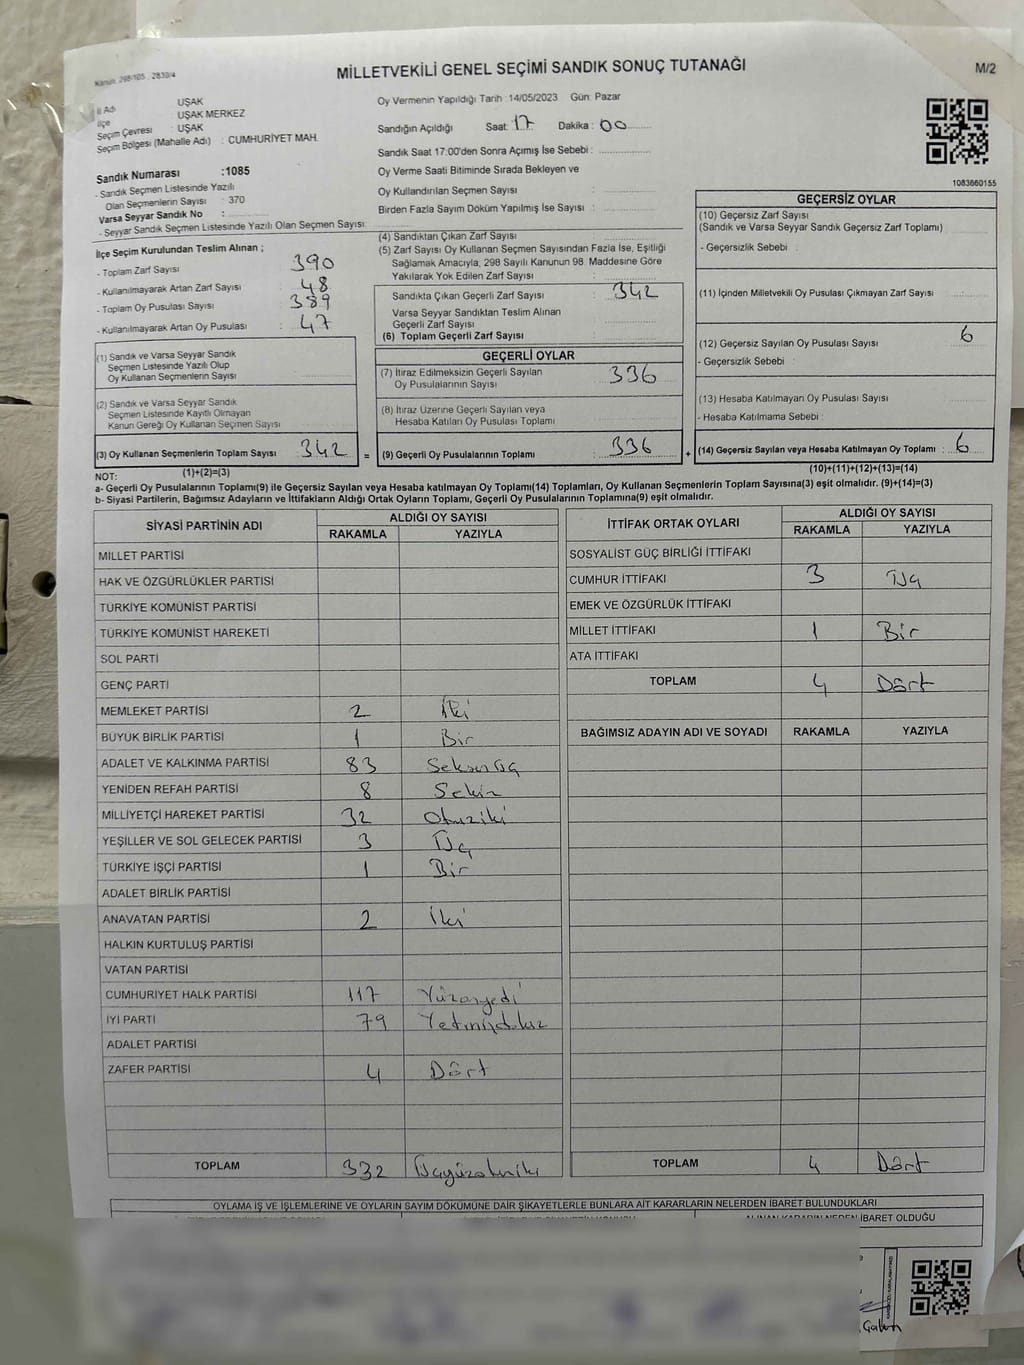 Kanun: 298/105 , 2839/4
MİLLETVEKİLİ GENEL SEÇİMİ SANDIK SONUÇ TUTANAĞI
M/2
İl Adı : UŞAK
İlçe : UŞAK MERKEZ
Seçim Çevresi : UŞAK
Seçim Bölgesi (Mahalle Adı) : CUMHURİYET MAH.
Sandık Numarası :1085
- Sandık Seçmen Listesinde Yazılı
Olan Seçmenlerin Sayısı : 370
Varsa Seyyar Sandık No :
- Seyyar Sandık Seçmen Listesinde Yazılı Olan Seçmen Sayısı:
Oy Vermenin Yapıldığı Tarih :14/05/2023 Gün: Pazar
Sandığın Açıldığı Saat: 17 Dakika: 00
Sandık Saat 17:00'den Sonra Açımış İse Sebebi :
Oy Verme Saati Bitiminde Sırada Bekleyen ve
Oy Kullandırılan Seçmen Sayısı :
Birden Fazla Sayım Döküm Yapılmış İse Sayısı :
1083660155
İlçe Seçim Kurulundan Teslim Alınan ;
- Toplam Zarf Sayısı : 390
- Kullanılmayarak Artan Zarf Sayısı : 48
- Toplam Oy Pusulası Sayısı : 389
- Kullanılmayarak Artan Oy Pusulası : 47
(1) Sandık ve Varsa Seyyar Sandık
Seçmen Listesinde Yazılı Olup
Oy Kullanan Seçmenlerin Sayısı :
(2) Sandık ve Varsa Seyyar Sandık
Seçmen Listesinde Kayıtlı Olmayan
Kanun Gereği Oy Kullanan Seçmen Sayısı
(3) Oy Kullanan Seçmenlerin Toplam Sayısı : 342 =
(1)+(2)=(3)
(4) Sandıktan Çıkan Zarf Sayısı :
(5) Zarf Sayısı Oy Kullanan Seçmen Sayısından Fazla İse, Eşitliği
Sağlamak Amacıyla; 298 Sayılı Kanunun 98. Maddesine Göre
Yakılarak Yok Edilen Zarf Sayısı :
Sandıkta Çıkan Geçerli Zarf Sayısı : 342
Varsa Seyyar Sandıktan Teslim Alınan
Geçerli Zarf Sayısı :
(6) Toplam Geçerli Zarf Sayısı :
GEÇERLİ OYLAR
(7) İtiraz Edilmeksizin Geçerli Sayılan
Oy Pusulalarının Sayısı : 336
(8) İtiraz Üzerine Geçerli Sayılan veya
Hesaba Katılan Oy Pusulası Toplamı :
(9) Geçerli Oy Pusulalarının Toplamı : 336 +
GEÇERSİZ OYLAR
(10) Geçersiz Zarf Sayısı
(Sandık ve Varsa Seyyar Sandık Geçersiz Zarf Toplamı)
- Geçersizlik Sebebi :
(11) İçinden Milletvekili Oy Pusulası Çıkmayan Zarf Sayısı
(12) Geçersiz Sayılan Oy Pusulası Sayısı : 6
- Geçersizlik Sebebi :
(13) Hesaba Katılmayan Oy Pusulası Sayısı :
- Hesaba Katılmama Sebebi :
(14) Geçersiz Sayılan veya Hesaba Katılmayan Oy Toplamı : 6
(10)+(11)+(12)+(13)=(14)
NOT:
a- Geçerli Oy Pusulalarının Toplamı(9) ile Geçersiz Sayılan veya Hesaba katılmayan Oy Toplamı(14) Toplamları, Oy Kullanan Seçmenlerin Toplam Sayısına(3) eşit olmalıdır. (9)+(14)=(3)
b- Siyasi Partilerin, Bağımsız Adayların ve İttifakların Aldığı Ortak Oyların Toplamı, Geçerli Oy Pusulalarının Toplamına(9) eşit olmalıdır.
SİYASİ PARTİNİN ADI
ALDIĞI OY SAYISI
RAKAMLA YAZIYLA
MİLLET PARTİSİ
HAK VE ÖZGÜRLÜKLER PARTİSİ
TÜRKİYE KOMÜNİST PARTİSİ
TÜRKİYE KOMÜNİST HAREKETİ
SOL PARTİ
GENÇ PARTİ
MEMLEKET PARTİSİ 2 İki
BÜYÜK BİRLİK PARTİSİ 1 Bir
ADALET VE KALKINMA PARTİSİ 83 Seksen Üç
YENİDEN REFAH PARTİSİ 8 Sekiz
MİLLİYETÇİ HAREKET PARTİSİ 32 Otuziki
YEŞİLLER VE SOL GELECEK PARTİSİ 3 Üç
TÜRKİYE İŞÇİ PARTİSİ 1 Bir
ADALET BİRLİK PARTİSİ
ANAVATAN PARTİSİ 2 İki
HALKIN KURTULUŞ PARTİSİ
VATAN PARTİSİ
CUMHURİYET HALK PARTİSİ 117 Yüzonyedi
İYİ PARTİ 79 Yetmişdokuz
ADALET PARTİSİ
ZAFER PARTİSİ 4 Dört
TOPLAM 332 Üçyüzotuziki
İTTİFAK ORTAK OYLARI
ALDIĞI OY SAYISI
RAKAMLA YAZIYLA
SOSYALİST GÜÇ BİRLİĞİ İTTİFAKI
CUMHUR İTTİFAKI 3 Üç
EMEK VE ÖZGÜRLÜK İTTİFAKI
MİLLET İTTİFAKI 1 Bir
ATA İTTİFAKI
TOPLAM 4 Dört
BAĞIMSIZ ADAYIN ADI VE SOYADI RAKAMLA YAZIYLA
TOPLAM 4 Dört
OYLAMA İŞ VE İŞLEMLERİNE VE OYLARIN SAYIM DÖKÜMÜNE DAİR ŞİKAYETLERLE BUNLARA AİT KARARLARIN NELERDEN İBARET BULUNDUKLARI
ALINAN KARARIN NEDEN İBARET OLDUĞU